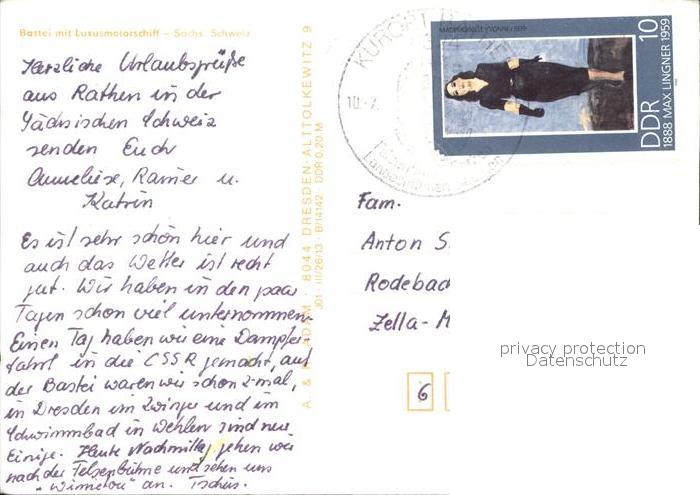 Bastei mit Luxusmotorschiff – Sächs. Schweiz
Herzliche Urlaubsgrüße
aus Rathen in der
Sächsischen Schweiz
senden Euch
Anneliese, Rainer u.
Katrin
Es ist sehr schön hier und
auch das Wetter ist recht
gut. Wir haben in den paar
Tagen schon viel unternommen.
Einen Tag haben wir eine Dampfer
fahrt in die CSSR gemacht, auf
der Bastei waren wir schon 2-mal,
in Dresden im Zwinger und im
Schwimmbad in Wehlen sind nur
Einige. Heute Nachmittag gehen wir
nach der Felsenbühne und sehen uns
"Winnetou" an. Tschüs.
A. & R. ADAM · 8044 DRESDEN-ALTTOLKEWITZ 9
J01 · III/26/13 · B/14142 · DDR 0,20 M
KURORT
10.-7.
MADEMOISELLE YVONNE / 1939
DDR 10
1888 MAX LINGNER 1959
Fam.
Anton S
Rodebac
Zella-M
6
privacy protection
Datenschutz